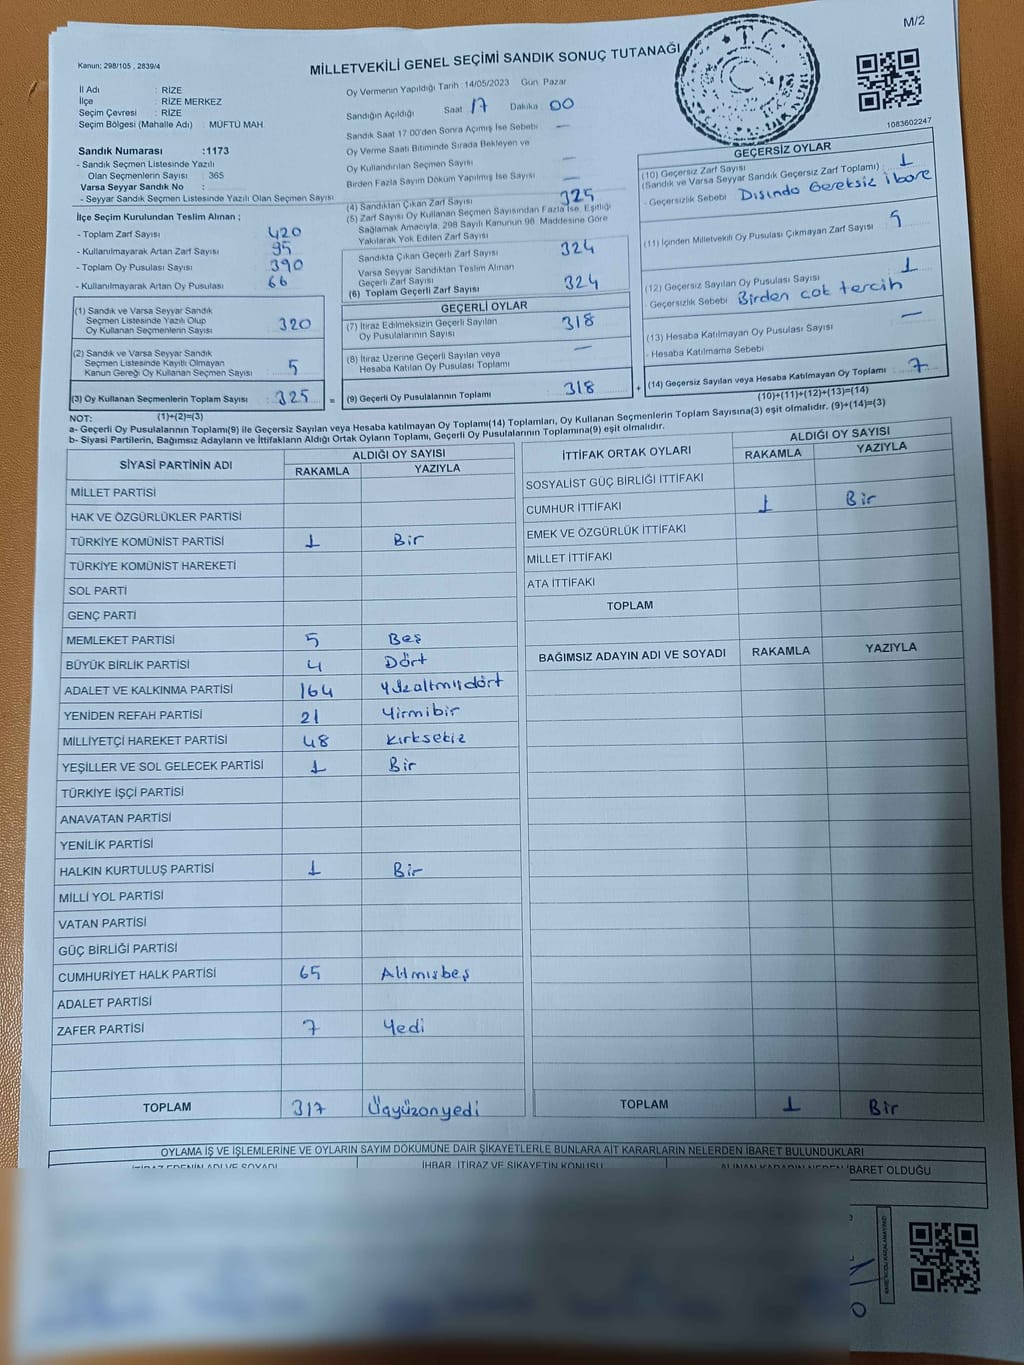 M/2
Kanun; 298/105 , 2839/4
MİLLETVEKİLİ GENEL SEÇİMİ SANDIK SONUÇ TUTANAĞI
T.C.
1083602247
İl Adı : RİZE
İlçe : RİZE MERKEZ
Seçim Çevresi : RİZE
Seçim Bölgesi (Mahalle Adı) : MÜFTÜ MAH
Sandık Numarası :1173
- Sandık Seçmen Listesinde Yazılı
Olan Seçmenlerin Sayısı : 365
Varsa Seyyar Sandık No :
- Seyyar Sandık Seçmen Listesinde Yazılı Olan Seçmen Sayısı :
İlçe Seçim Kurulundan Teslim Alınan ;
- Toplam Zarf Sayısı : 420
- Kullanılmayarak Artan Zarf Sayısı : 95
- Toplam Oy Pusulası Sayısı : 390
- Kullanılmayarak Artan Oy Pusulası : 66
(1) Sandık ve Varsa Seyyar Sandık
Seçmen Listesinde Yazılı Olup
Oy Kullanan Seçmenlerin Sayısı : 320
(2) Sandık ve Varsa Seyyar Sandık
Seçmen Listesinde Kayıtlı Olmayan
Kanun Gereği Oy Kullanan Seçmen Sayısı : 5
(3) Oy Kullanan Seçmenlerin Toplam Sayısı : 325
(1)+(2)=(3)
Oy Vermenin Yapıldığı Tarih :14/05/2023 Gün Pazar
Sandığın Açıldığı Saat :17 Dakika :00
Sandık Saat 17.00'den Sonra Açımış İse Sebebi : —
Oy Verme Saati Bitiminde Sırada Bekleyen ve
Oy Kullandırılan Seçmen Sayısı : —
Birden Fazla Sayım Döküm Yapılmış İse Sayısı : —
(4) Sandıktan Çıkan Zarf Sayısı : 325
(5) Zarf Sayısı Oy Kullanan Seçmen Sayısından Fazla İse, Eşitliği
Sağlamak Amacıyla, 298 Sayılı Kanunun 98. Maddesine Göre
Yakılarak Yok Edilen Zarf Sayısı :
Sandıkta Çıkan Geçerli Zarf Sayısı : 324
Varsa Seyyar Sandıktan Teslim Alınan
Geçerli Zarf Sayısı :
(6) Toplam Geçerli Zarf Sayısı : 324
GEÇERLİ OYLAR
(7) İtiraz Edilmeksizin Geçerli Sayılan
Oy Pusulalarının Sayısı : 318
(8) İtiraz Üzerine Geçerli Sayılan veya
Hesaba Katılan Oy Pusulası Toplamı : —
= (9) Geçerli Oy Pusulalarının Toplamı : 318 +
GEÇERSİZ OYLAR
(10) Geçersiz Zarf Sayısı : 1
(Sandık ve Varsa Seyyar Sandık Geçersiz Zarf Toplamı)
- Geçersizlik Sebebi : Dışında Gereksiz ibare
(11) İçinden Milletvekili Oy Pusulası Çıkmayan Zarf Sayısı : 5
(12) Geçersiz Sayılan Oy Pusulası Sayısı : 1
Geçersizlik Sebebi : Birden çok tercih
(13) Hesaba Katılmayan Oy Pusulası Sayısı : —
- Hesaba Katılmama Sebebi :
(14) Geçersiz Sayılan veya Hesaba Katılmayan Oy Toplamı : 7
(10)+(11)+(12)+(13)=(14)
NOT:
a- Geçerli Oy Pusulalarının Toplamı(9) ile Geçersiz Sayılan veya Hesaba katılmayan Oy Toplamı(14) Toplamları, Oy Kullanan Seçmenlerin Toplam Sayısına(3) eşit olmalıdır. (9)+(14)=(3)
b- Siyasi Partilerin, Bağımsız Adayların ve İttifakların Aldığı Ortak Oyların Toplamı, Geçerli Oy Pusulalarının Toplamına(9) eşit olmalıdır.
SİYASİ PARTİNİN ADI ALDIĞI OY SAYISI
RAKAMLA YAZIYLA
MİLLET PARTİSİ
HAK VE ÖZGÜRLÜKLER PARTİSİ
TÜRKİYE KOMÜNİST PARTİSİ 1 Bir
TÜRKİYE KOMÜNİST HAREKETİ
SOL PARTİ
GENÇ PARTİ
MEMLEKET PARTİSİ 5 Beş
BÜYÜK BİRLİK PARTİSİ 4 Dört
ADALET VE KALKINMA PARTİSİ 164 yüzaltmışdört
YENİDEN REFAH PARTİSİ 21 Yirmibir
MİLLİYETÇİ HAREKET PARTİSİ 48 Kırksekiz
YEŞİLLER VE SOL GELECEK PARTİSİ 1 Bir
TÜRKİYE İŞÇİ PARTİSİ
ANAVATAN PARTİSİ
YENİLİK PARTİSİ
HALKIN KURTULUŞ PARTİSİ 1 Bir
MİLLİ YOL PARTİSİ
VATAN PARTİSİ
GÜÇ BİRLİĞİ PARTİSİ
CUMHURİYET HALK PARTİSİ 65 Altmışbeş
ADALET PARTİSİ
ZAFER PARTİSİ 7 Yedi
TOPLAM 317 Üçyüzonyedi
İTTİFAK ORTAK OYLARI ALDIĞI OY SAYISI
RAKAMLA YAZIYLA
SOSYALİST GÜÇ BİRLİĞİ İTTİFAKI
CUMHUR İTTİFAKI 1 Bir
EMEK VE ÖZGÜRLÜK İTTİFAKI
MİLLET İTTİFAKI
ATA İTTİFAKI
TOPLAM
BAĞIMSIZ ADAYIN ADI VE SOYADI RAKAMLA YAZIYLA
TOPLAM 1 Bir
OYLAMA İŞ VE İŞLEMLERİNE VE OYLARIN SAYIM DÖKÜMÜNE DAİR ŞİKAYETLERLE BUNLARA AİT KARARLARIN NELERDEN İBARET BULUNDUKLARI
İTİRAZ EDENİN ADI VE SOYADI İHBAR, İTİRAZ VE ŞİKAYETİN KONUSU ALINAN KARARIN NEDEN İBARET OLDUĞU